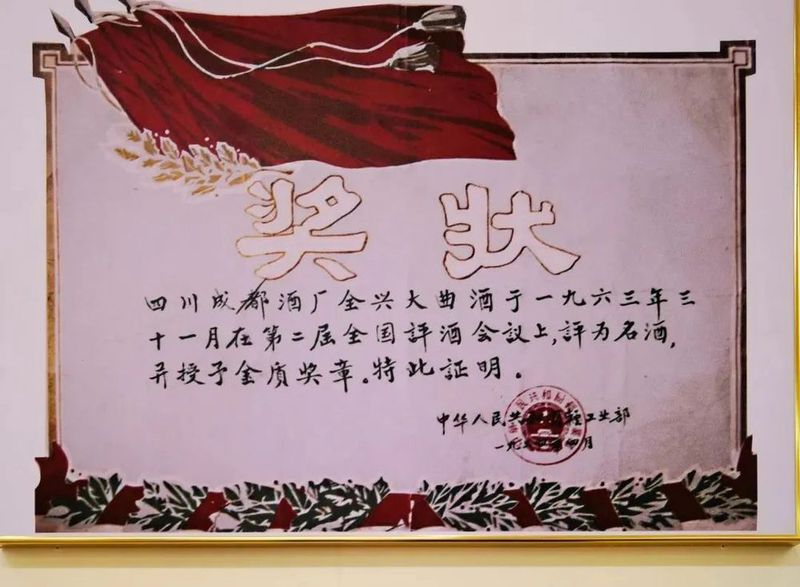 奖状
四川成都酒厂全兴大曲酒于一九六三年三
十一月在第二届全国評酒会议上,評为名酒,
并授予金质奖章。特此証明。
中华人民共和国轻工业部
一九六四年四月